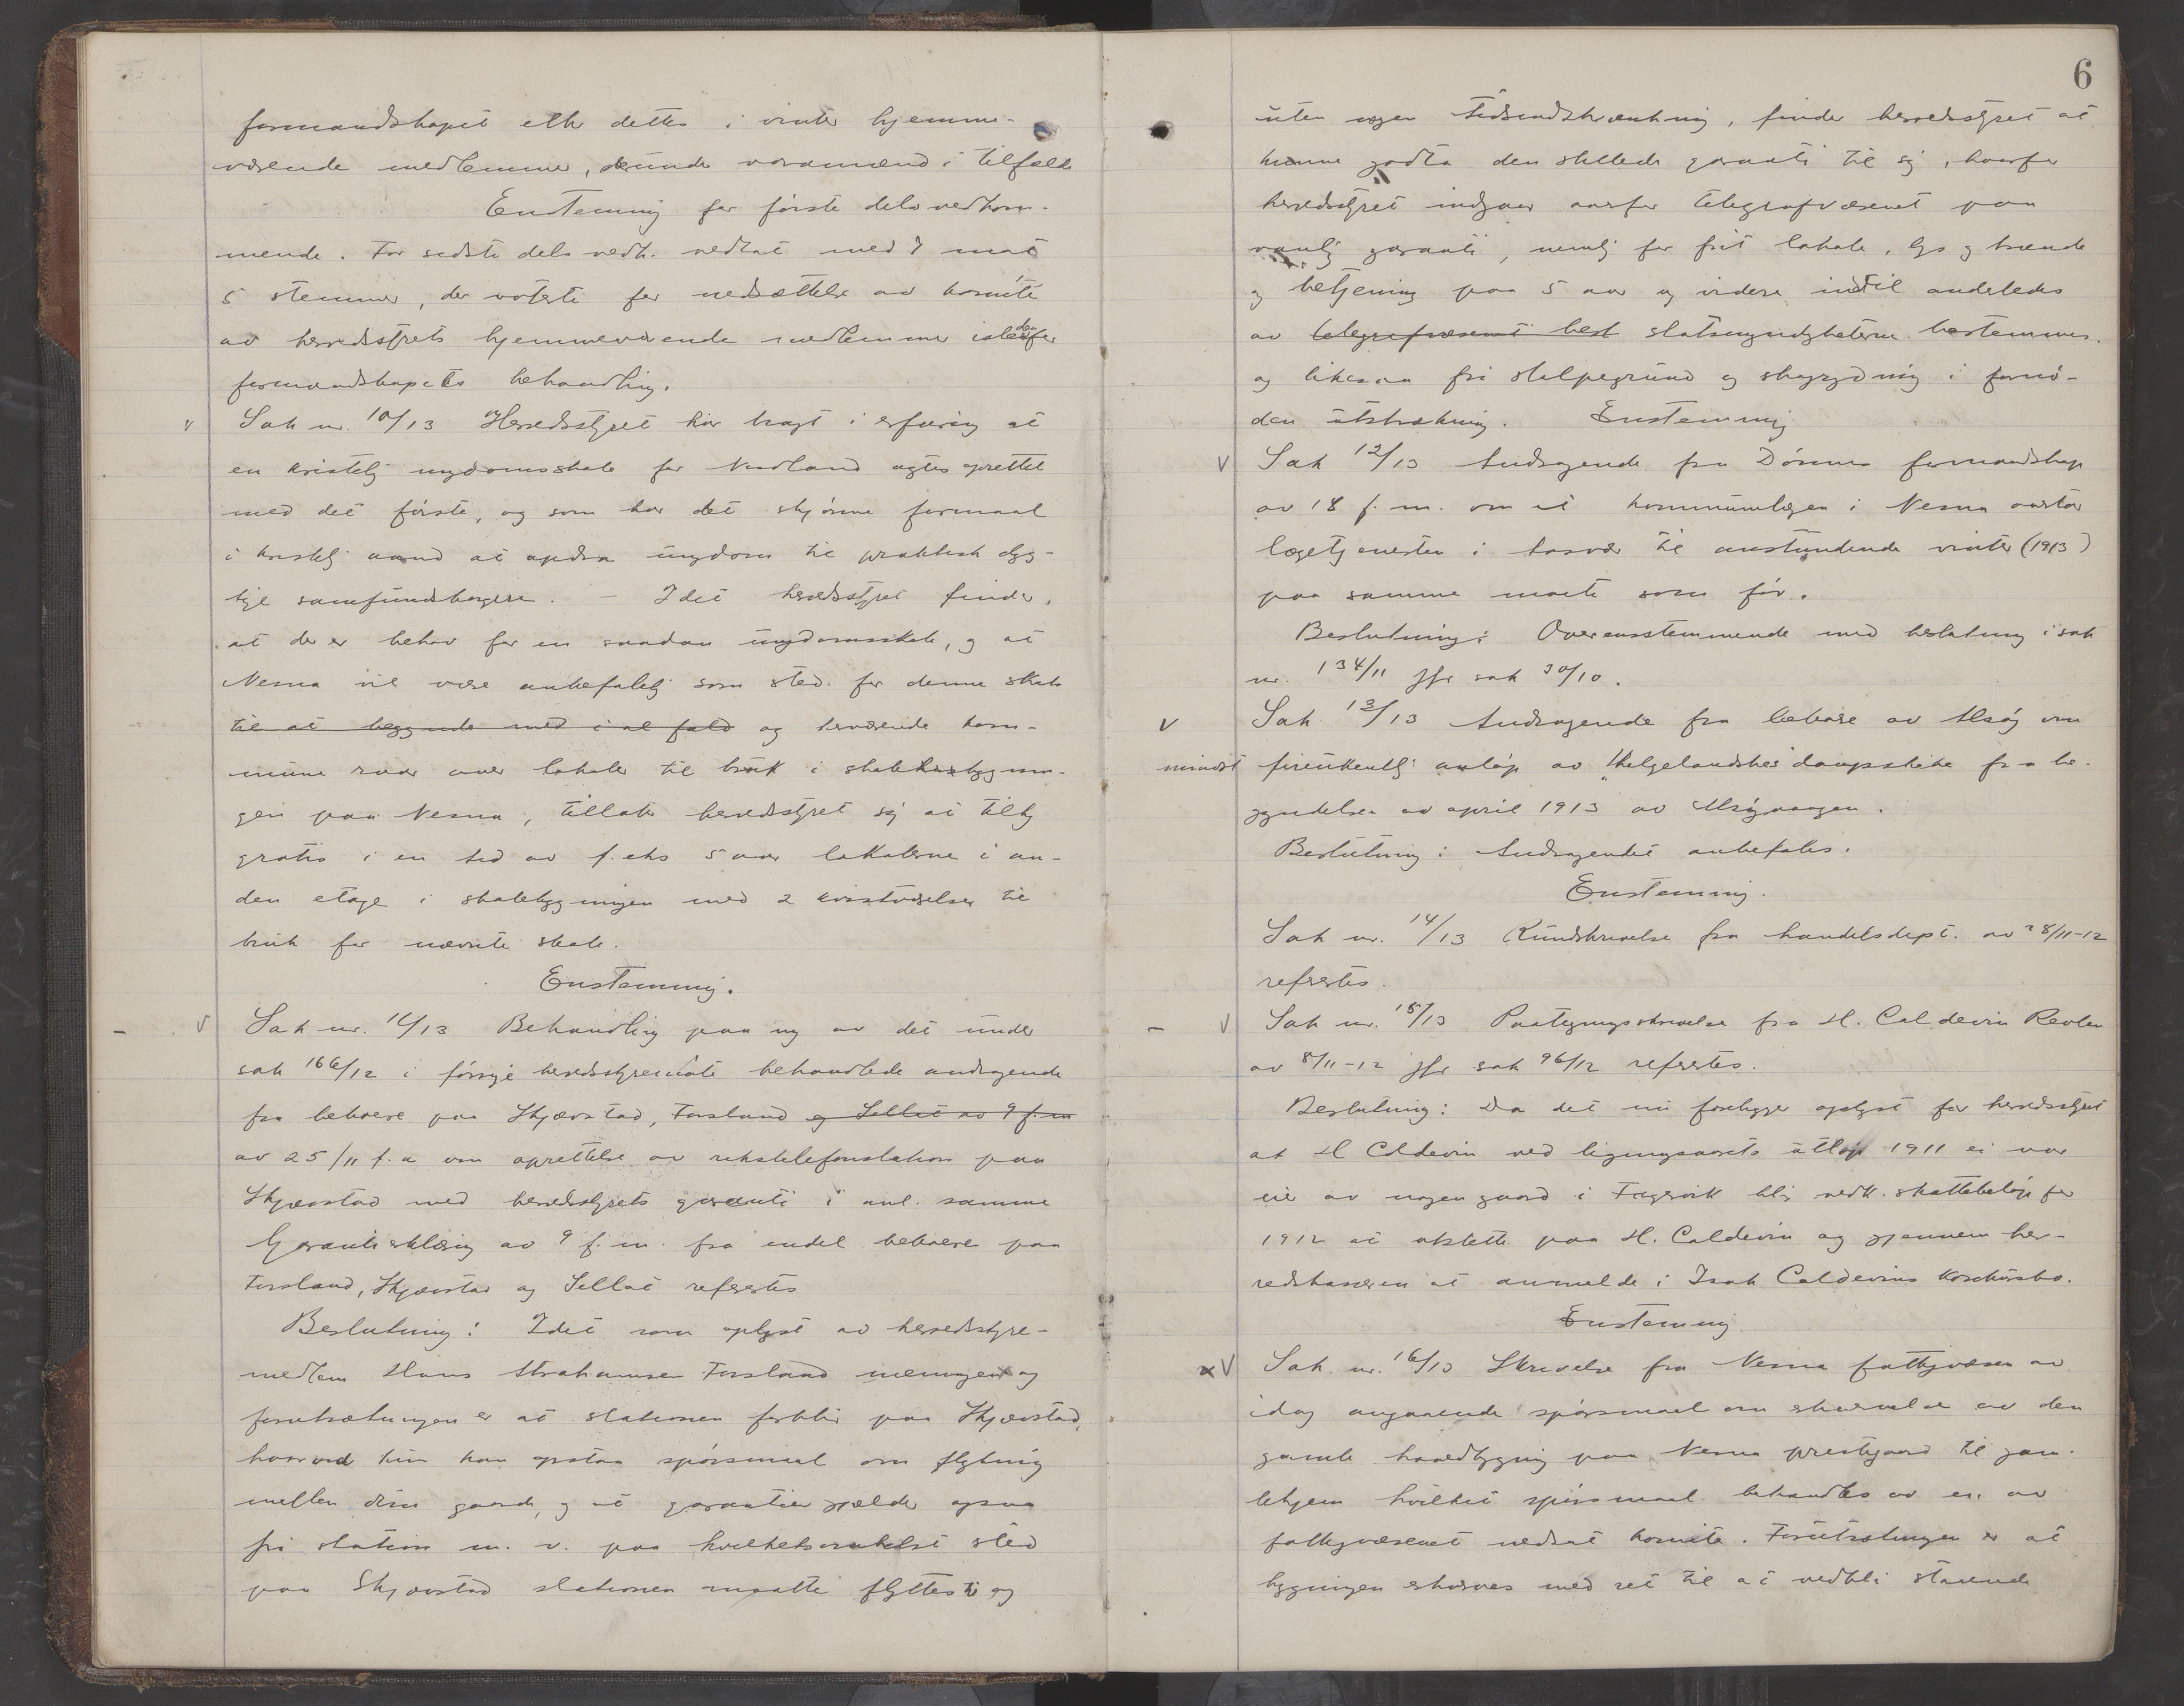 formandskapet eller dettes i vinter hjemme-
værende medlemmer, kunde varamænd i tilfælde
Enstemmig for første dels vedkom-
mende. For sidste dels vedk. vedtat med 7 mot
5 stemmer, der voterte for nedsættelse av komite
av herredsstyrets hjemmeværende medlemmer istedenfor
formandskapets behandling.
v Sak nr. 10/13 Herredsstyret har bragt i erfaring at
en kristelig ungdomsskole for Nordland agtes oprettet
med det første, og som har det skjønne formaal
i kristelig aand at opdra ungdom til praktisk dyg-
tige samfundsborgere. – Idet herredsstyret finder,
at der er behov for en saadan ungdomsskole, og at
Nesna vil være anbefalelig som sted for denne skole
til at begynde med i al fald og herværende kom-
mune raar over lokaler til bruk i skolebygnin-
gen paa Nesna, tillater herredsstyret sig at tilby
gratis i en tid av f.eks 5 aar lokalerne i an-
den etage i skolebygningen med 2 kvistværelser til
bruk for nævnte skole.
Enstemmig.
– v Sak nr. 11/13 Behandling paa ny av det under
sak 166/12 i forrige herredsstyremøte behandlede andragende
fra beboere paa Skjævstad, Forsland og Sellæt av 9 f. m
av 25/11 f.a om oprettelse av rikstelefonstation paa
Skjævstad med herredsstyrets garanti i anl. samme
Garantierklæring av 9 f.m. fra endel beboere paa
Forsland, Skjævstad og Sellæt refertes
Beslutning: Idet som oplyst av herredsstyre-
medlem Hans Abrahamsen Forsland meningen og
forutsætningen er at stationen forblir paa Skjævstad,
hvorved kun kan opstaa spørsmaal om flytning
mellem disse gaarde, og at garantien gjælder ogsaa
fri station m. v. paa hvilketsomhelst sted
paa Skjævstad stationen maatte flyttes til og
6
uten nogen tidsindskrænkning, finder herredsstyret at
kunne godta den stillede garanti til sig, hvorfor
herredsstyret indgaar overfor telegrafvæsenet paa
vanlig garanti, nemlig for frit lokale, lys og brænde
og betjening paa 5 aar og videre indtil anderledes
av telegrafvæsenet best statsmyndigheterne bestemmes.
og likesaa fri stolpegrund og skogrydning i fornø-
den utstrækning. Enstemmig
v Sak 12/13 Andragende fra Dønnes formandskap
av 18 f. m. om at kommunelægen i Nesna overtar
lægetjenesten i Aasvær til anstundende vinter (1913)
paa samme maate som før.
Beslutning: Overensstemmende med beslutning i sak
nr. 134/11 jfr sak 30/10.
v Sak 13/13 Andragende fra beboere av Alsøy om
mindst fireukentlig anløp av Helgelandske dampskibe fra be-
gyndelsen av april 1913 av Alsøyvaagen.
Beslutning: Andragendet anbefales.
Enstemmig.
Sak nr. 14/13 Rundskrivelse fra handelsdept. av 28/11-12
refertes.
– v Sak nr. 15/13 Paategningsskrivelse fra H. Coldevin Revlen
av 8/11-12 jfr sak 96/12 refertes.
Beslutning: Da det nu foreligger oplyst for herredsstyret
at H Coldevin ved ligningsaarets utløp 1911 ei var
eier av nogen gaard i Fagervik blir vedk. skattebeløp for
1912 at utslette paa H. Coldevin og gjennem her-
redskassereren at anmelde i Isak Coldevins konkursbo.
Enstemmig
x v Sak nr. 16/13 Skrivelse fra Nesna fattigvæsen av
idag angaaende spørsmaal om erhvervelse av den
gamle hovedbygning paa Nesna prestegaard til gam-
lehjem hvilket spørsmaal behandles av en av
fattigvæsenet nedsat komite. Forutsætningen er at
bygningen erhverves med ret til at vedbli staaende